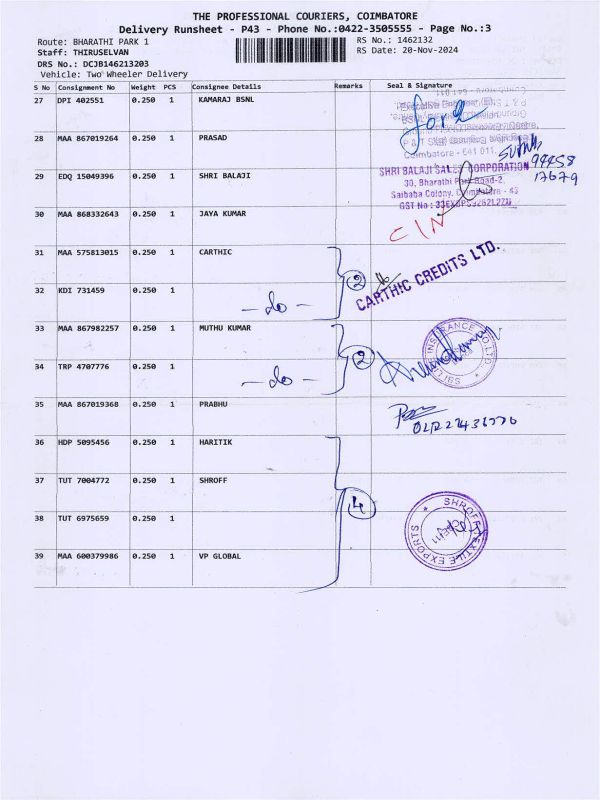 THE PROFESSIONAL COURIERS, COIMBATORE
Delivery Runsheet - P43 - Phone No.:0422-3505555 - Page No.:3
Route: BHARATHI PARK 1 RS No.: 1462132
Staff: THIRUSELVAN RS Date: 20-Nov-2024
DRS No.: DCJB146213203
Vehicle: Two Wheeler Delivery
S No Consignment No Weight PCS Consignee Details Remarks Seal & Signature
27 DPI 402551 0.250 1 KAMARAJ BSNL
28 MAA 867019264 0.250 1 PRASAD
Coimbatore - 641 011.
29 EDQ 15049396 0.250 1 SHRI BALAJI
SHRI BALAJI SALES CORPORATION
30, Bharathi Park Road-2,
Saibaba Colony, Coimbatore - 43
30 MAA 868332643 0.250 1 JAYA KUMAR
31 MAA 575813015 0.250 1 CARTHIC
CARTHIC CREDITS LTD.
32 KDI 731459 0.250 1 - do - 2
33 MAA 867982257 0.250 1 MUTHU KUMAR
34 TRP 4707776 0.250 1 - do - 2
35 MAA 867019368 0.250 1 PRABHU
36 HDP 5095456 0.250 1 HARITIK
37 TUT 7004772 0.250 1 SHROFF 4
38 TUT 6975659 0.250 1
SHROFF TEXTILE EXPORTS
39 MAA 600379986 0.250 1 VP GLOBAL